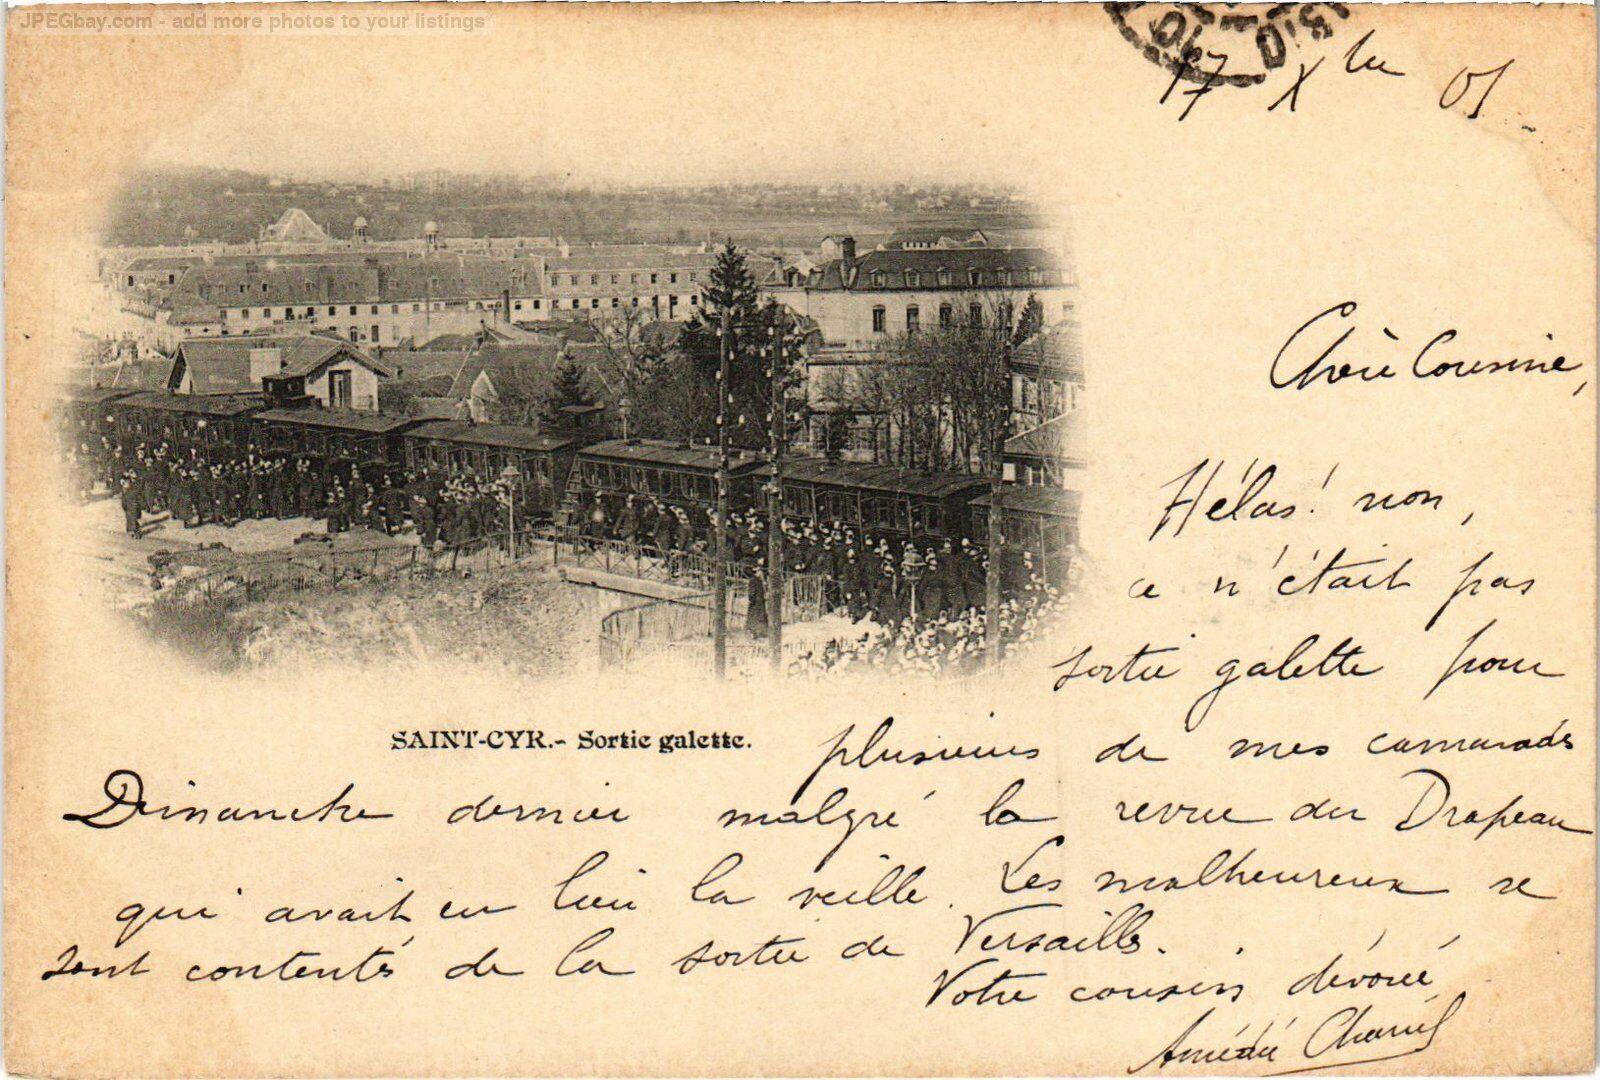 JPEGbay.com - add more photos to your listings
17 Xbre 01
Chère Cousine,
Hélas! non,
ce n'était pas
sortie galette pour
SAINT-CYR.- Sortie galette.
plusieurs de mes camarades
Dimanche dernier malgré la revue du Drapeau
qui avait eu lieu la veille. Les malheureux se
sont contentés de la sortie de Versailles.
Votre cousin dévoué
Amédée